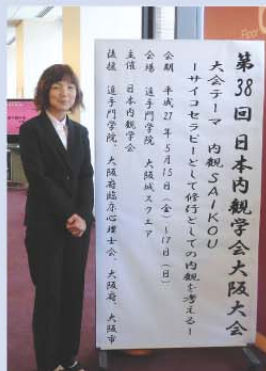 第38回 日本内観学会大阪大会
大会テーマ 内観 SAIKOU
ーサイコセラピーとして修行としての内観を考えるー
会期 平成27年5月15日(金)～17日(日)
会場 追手門学院 大阪城スクエア
主催 日本内観学会
後援 追手門学院、大阪府臨床心理士会、大阪府、大阪市
Floor